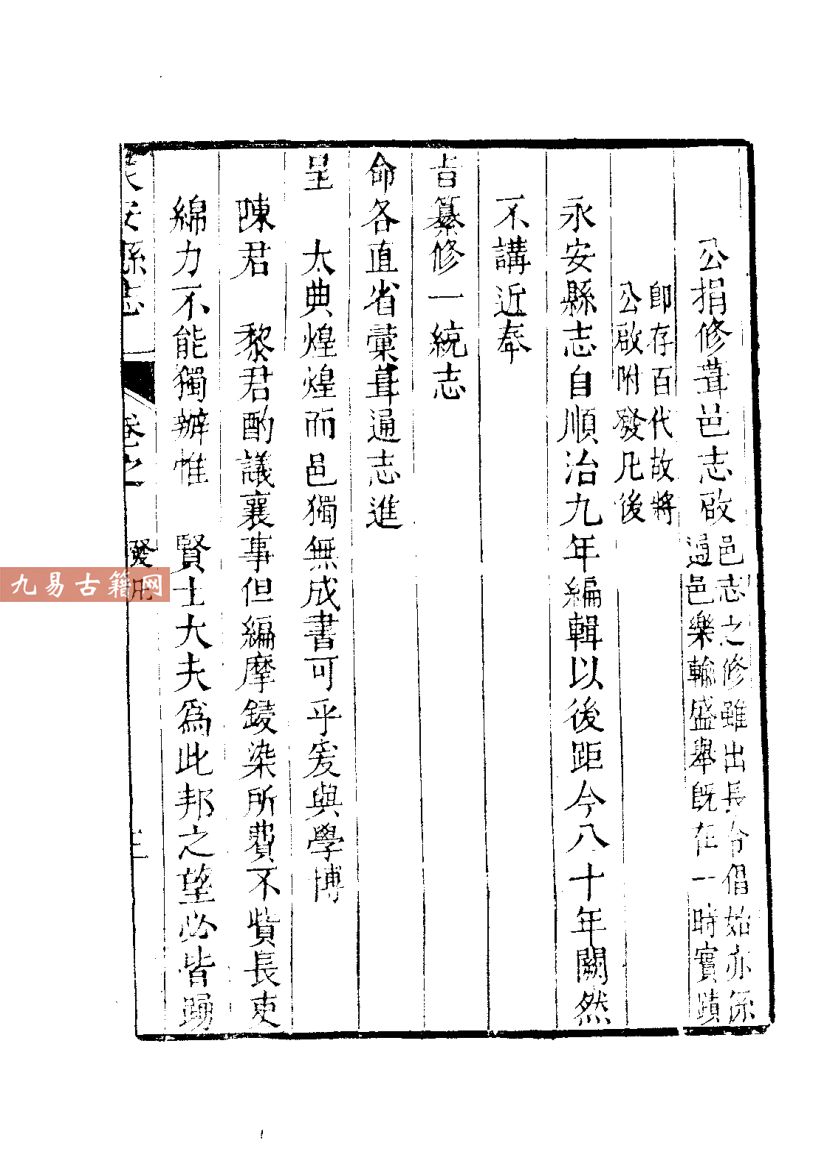 公捐修葺邑志啟邑志之修雖出長令倡始亦係
通邑樂輸盛舉既在一時實蹟
卽存百代故將
公啟附發凡後
永安縣志自順治九年編輯以後距今八十年闕然
不講近奉
旨纂修一統志
命各直省彙葺通志進
呈　大典煌煌而邑獨無成書可乎爰與學博
陳君　黎君酌議襄事但編摩鋟染所費不貲長吏
綿力不能獨辦惟　賢士大夫為此邦之望必皆踴
永安縣志
卷之
發凡
三
九易古籍网